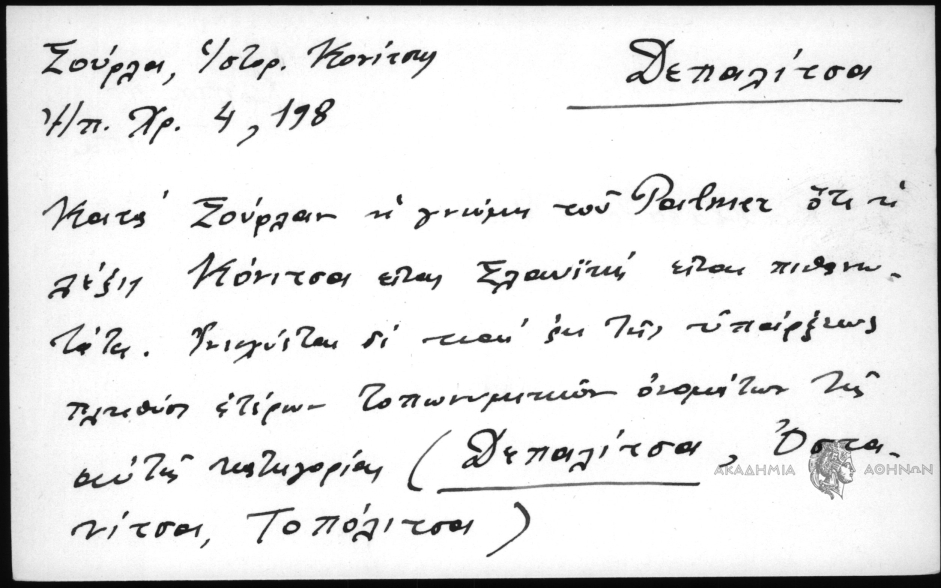 Σούρλα, Ἱστορ. Κονίτσης
Δεπαλίτσα
Ἠπ. Χρ. 4, 198
Κατά Σούρλαν ἡ γνώμη τοῦ Palmer ὅτι ἡ
λέξις Κόνιτσα εἶναι Σλαυϊκή εἶναι πιθανω-
τάτη. Ἐνισχύεται δέ καί ἐκ τῆς ὑπάρξεως
πλήθους ἑτέρων τοπωνυμικῶν ὀνομάτων τῆς
αὐτῆς κατηγορίας (Δεπαλίτσα, Ὀστα-
νίτσα, Τοπόλιτσα)
ΑΚΑΔΗΜΙΑ ΑΘΗΝΩΝ